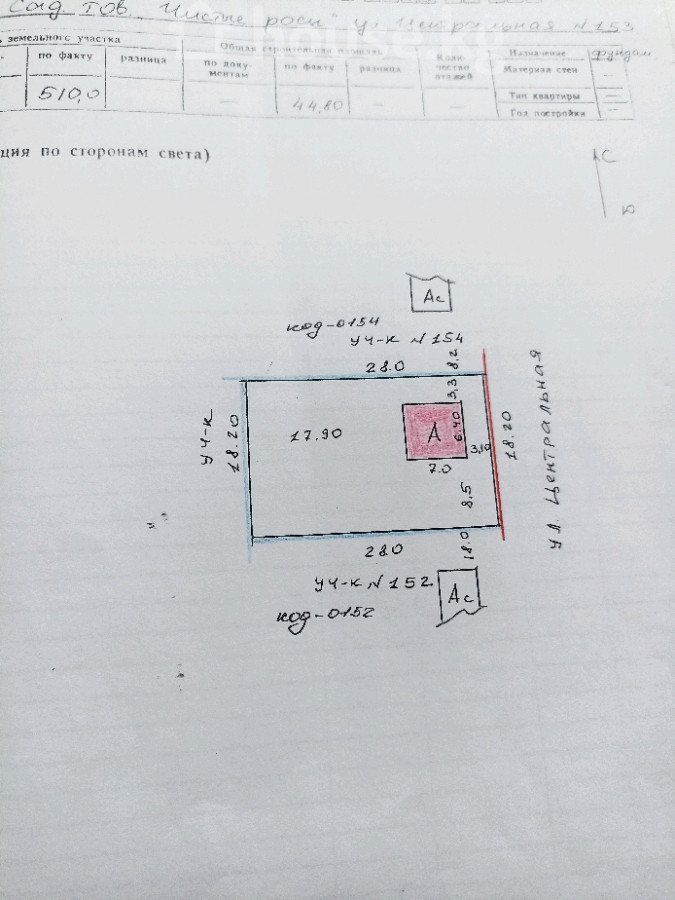 Сад. тов. "Чистые росы" ул. Центральная N 153
земельного участка
Общая строительная площадь
Назначение фундам
по факту разница по доку-ментам по факту разница Коли-чество этажей Материал стен —
510,0 — 44,80 — — Тип квартиры —
Год постройки —
ция по сторонам света)
С
ю
Ас
код-0154
уч-к N 154
28.0 8.2
уч-к 18.20 17.90 3,3 А 6.40 3,10 18.20 ул. Центральная
7.0
8.5
28.0 18.0
уч-к N 152 Ас
код-0152